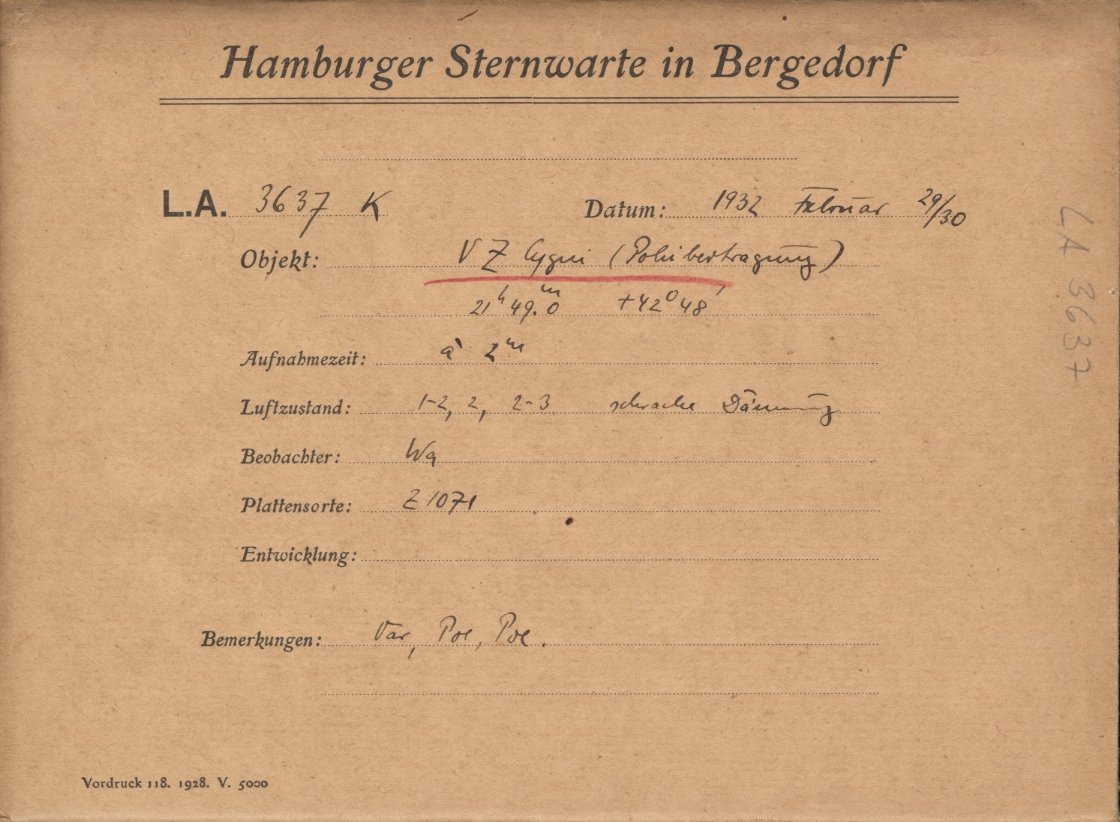 Hamburger Sternwarte in Bergedorf
L.A. 3637 K Datum: 1932 Februar 29/30
Objekt: VZ Cygni (Polübertragung)
21h 49.m0 +42° 48'
Aufnahmezeit: à 2m
Luftzustand: 1-2, 2, 2-3 schwache Dämmung
Beobachter: Wa
Plattensorte: Z 1071
Entwicklung:
Bemerkungen: Var, Pol, Pol.
Vordruck 118. 1928. V. 5000
LA 3637